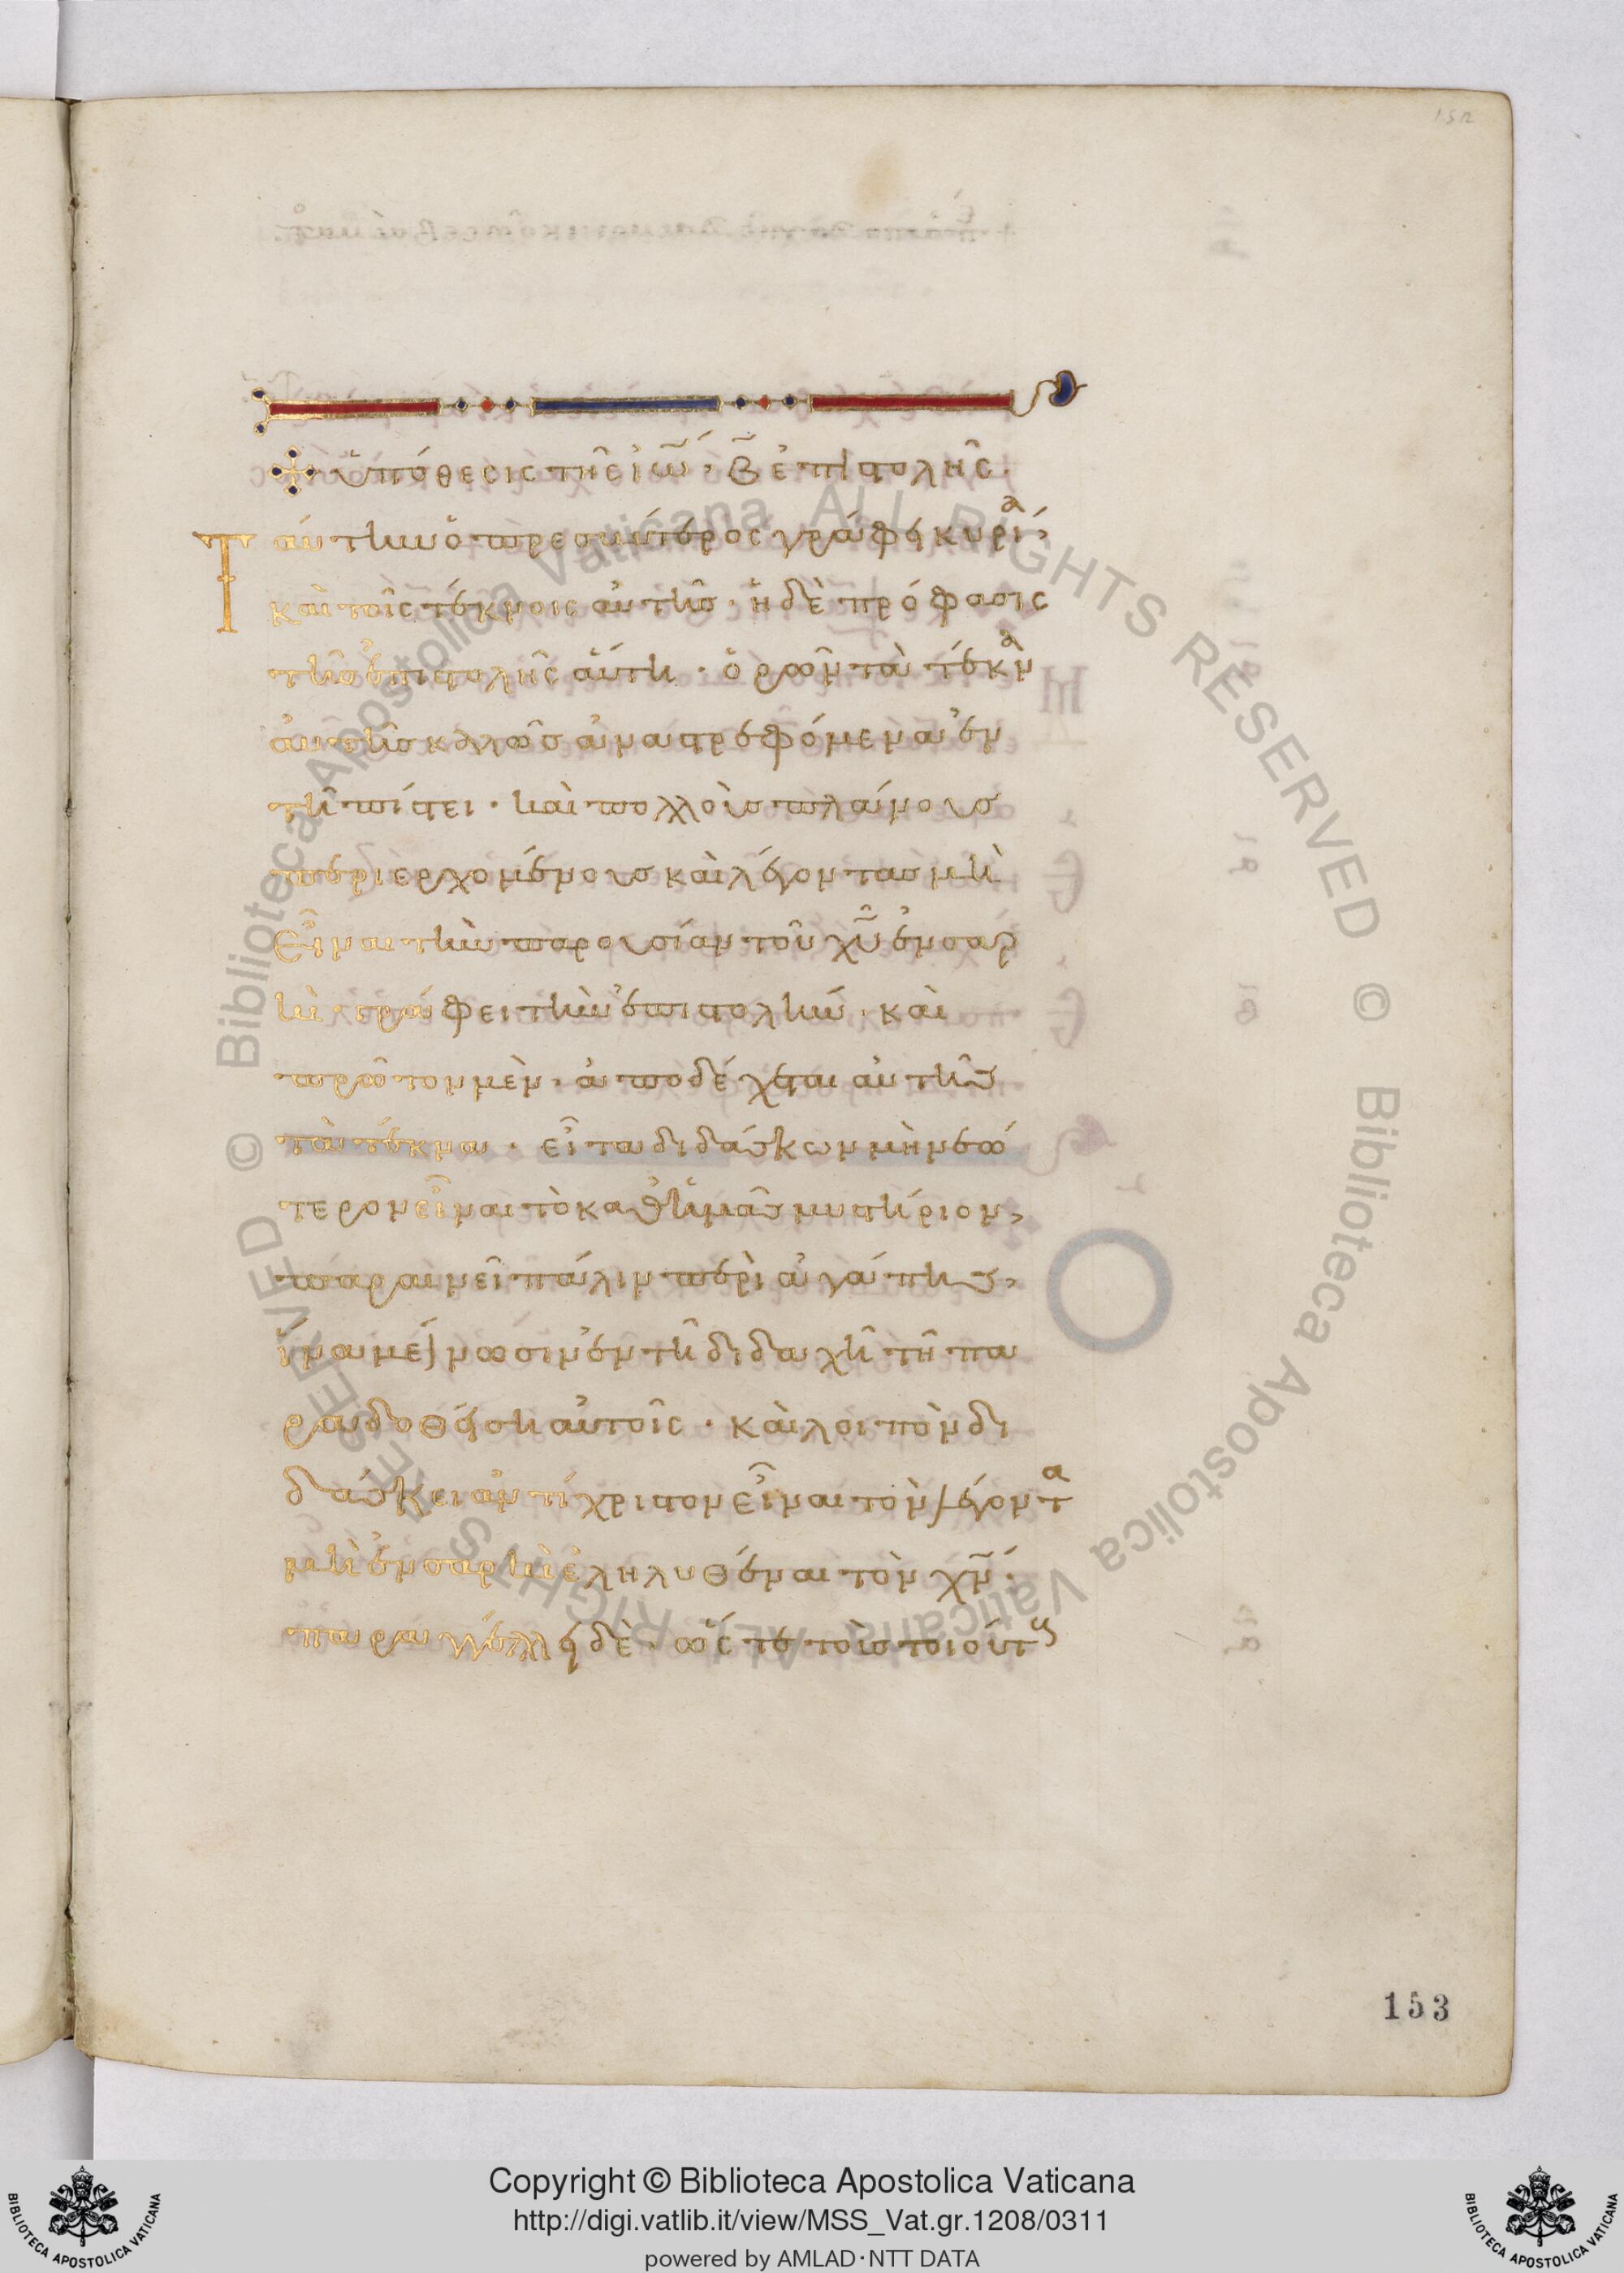 152
ὑπόθεσις τῆς ἰω̅ · β̅ ἐπιστολῆς ·
Ταύτην ὁ πρεσβύτερος γράφει κυρίᾳ
καὶ τοῖς τέκνοις αὐτῆς · ἡ δὲ πρόφασις
τῆς ἐπιστολῆς αὕτη · ὁρῶν τὰ τέκνα
αὐτῆς καλῶς ἀναστρεφόμενα ἐν
τῇ πίστει · καὶ πολλοὺς πλάνους
περιερχομένους καὶ λέγοντας μὴ
εἶναι τὴν παρουσίαν τοῦ χῦ ἐν σαρ
κὶ γράφει τὴν ἐπιστολήν · καὶ
πρῶτον μὲν · ἀποδέχεται αὐτῆς
τὰ τέκνα · εἶτα διδάσκων μὴ νεώ
τερον εἶναι τὸ καθ ἡμᾶς μυστήριον,
παραινεῖ πάλιν περὶ ἀγάπης,
ἵνα μένωσιν ἐν τῇ διδαχῇ τῇ πα
ραδοθείσῃ αὐτοῖς · καὶ λοιπὸν δι
δάσκει ἀντίχριστον εἶναι τὸν λέγοντα
μὴ ἐν σαρκὶ ἐληλυθέναι τὸν χν̅ ·
παραγγέλλει δὲ · ὥστε τοῖς τοιούτοις
153
Biblioteca Apostolica Vaticana ALL RIGHTS RESERVED ©
Biblioteca Apostolica Vaticana ALL RIGHTS RESERVED ©
BIBLIOTECA APOSTOLICA VATICANA
Copyright © Biblioteca Apostolica Vaticana
http://digi.vatlib.it/view/MSS_Vat.gr.1208/0311
powered by AMLAD·NTT DATA
BIBLIOTECA APOSTOLICA VATICANA